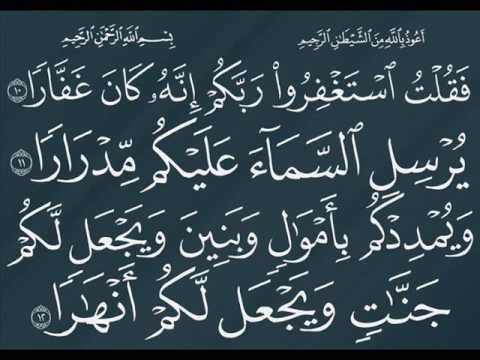 أَعُوذُ بِاللَّهِ مِنَ الشَّيْطَٰنِ الرَّجِيمِ بِسْمِ اللَّهِ الرَّحْمَٰنِ الرَّحِيمِ
فَقُلْتُ ٱسْتَغْفِرُوا۟ رَبَّكُمْ إِنَّهُۥ كَانَ غَفَّارًا ١٠
يُرْسِلِ ٱلسَّمَآءَ عَلَيْكُم مِّدْرَارًا ١١
وَيُمْدِدْكُم بِأَمْوَٰلٍ وَبَنِينَ وَيَجْعَل لَّكُمْ
جَنَّٰتٍ وَيَجْعَل لَّكُمْ أَنْهَٰرًا ١٢